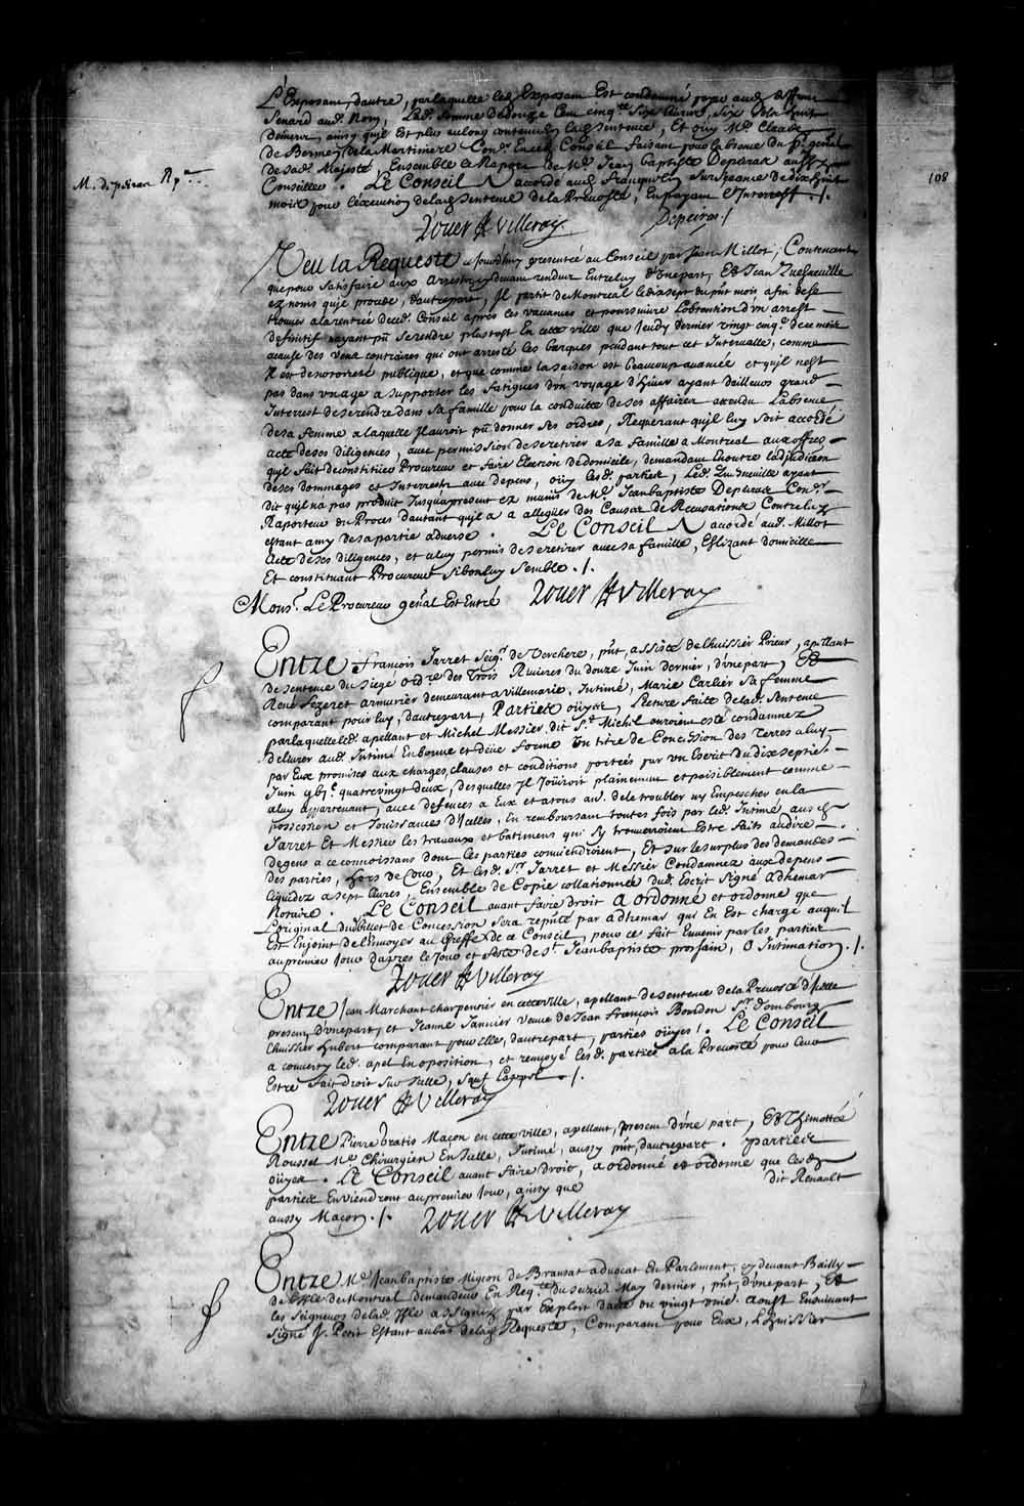 L'Exposant, d'autre, par laquelle led. Exposant Est condamné payer aud. deffunt
Senard aud. Nom, Lad. somme de douze Cent cinq.te Six livres, six sols huit
deniers, ainsy quil Est plus aulong contenu En lad. Sentence, Et ouy M.e Claude
de Bermen de la Martiniere Con.er En ced. Conseil faisant pour labsence du P.r general
de Sa d. Majesté, Ensemble le Raport de M.e Jean baptiste Depeiras aussy
Conseiller. Le Conseil A accordé aud. Francquelin Surseance de dix huit
M. depeiras R.r
108
mois pour lexecution de lad. Sentence de la Prevosté, En payant l'Interest ./.
Rouer de Villeray Depeiras ./.
Veu la Requeste cejourdhuy presentée au Conseil par Jean Millot, Contenant
que pour satisfaire aux arrests cy devant rendus Entre luy d'une part, Et Jean Quenneville
ez noms quil procede, d'autre part, Il partit de Montreal le dix sept du p.nt mois afin de se
trouver a la rentrée de ced. Conseil après les vacances et poursuivre l'obtention d'un arrest
definitif nayant pû Se rendre plustost En cette ville que Jeudy dernier vingt cinq.e de ce mois
acause des vents contraires qui ont arresté les barques pendant tout cet Intervalle, comme
Il est de notorieté publique, et que comme la saison est beaucoup avancée et quil nest
pas dans un age a supporter les fatigues d'un voyage d'hiver ayant dailleurs grand
Interest de se rendre dans sa famille pour la conduitte de ses affaires attendu L'absence
de sa femme a laquelle Il auroit pû donner ses ordres, Requerant quil luy soit accordé
acte de ses diligences, avec permission de se retirer a sa famille a Montreal aux offres
quil fait de constituer Procureur et faire Election de domicile, demandant En outre ladjudication
de ses dommages et Interests avec depens, ouy lesd. parties, Led. Quenneville ayant
dit quil na pas produit Jusqua present ez mains de M.e Jean baptiste Depeiras Con.er
Raporteur du Procez d'autant quil a a alleguer des Causes de Recusations Contre luy
estant amy de sa partie adverse. Le Conseil A accordé aud. Millot
Acte de ses diligences, et a luy permis de se retirer avec sa famille, Eslizant domicille
Et constituant Procureur si bon luy semble ./.
Mons.r Le Procureur general Est Entré Rouer de Villeray
Entre François Jarret Seig.r de Vercheres, p.nt, assisté de lhuissier Prieur, apellant
de sentence du Siege ord.re des Trois Rivieres du douze Juin dernier, d'une part, Et
René Fezeret armurier demeurant a Villemarie, Intimé, Marie Carlier sa femme
comparant pour luy, d'autre part, Parties ouyes, Lecture faite de lad. Sentence
par laquelle led. apellant et Michel Messier dit S.t Michel auroient esté condamnez
delivrer aud. Intimé En bonne et deüe forme Un titre de Concession des Terres a luy
par Eux promises aux charges, clauses et conditions portées par un Escrit du dix septie.
Juin g bj.c quatre vingt deux, desquelles Il Joüiroit plainement et paisiblement comme
a luy appartenant, avec defences a Eux et a tous au.s de le troubler ny Empescher en la
possession et Jouissances d'Icelles, En remboursant toutes fois par led. Intimé, ausd.
Jarret Et Messier les travaux et batimens qui sy trouveroient Estre faits au dire
de gens a ce connoissans dont les parties conviendroient, Et sur le surplus des demandes
des parties, hors de Cour, Et lesd. S.rs Jarret et Messier Condamnez aux depens
liquidez a sept livres, Ensemble de Copie collationnée dud. Escrit signé Adhemar
Notaire. Le Conseil avant faire droit a ordonné et ordonne que
L'original dud. billet de Concession sera reputé par adhemar qui En Est chargé auquel
Est Enjoint de l'Envoyer au Greffe de ce Conseil, pour ce fait En venir par les parties
au premier Jour d'apres le Jour et feste de S.t Jean baptiste prochain, O Intimation ./.
Rouer de Villeray
Entre Jean Marchant charpentier en cette ville, apellant de sentence de la Prevosté d'Icelle
present d'une part, et Jeanne Jannier veuve de Jean François Bourdon S.r d'ombourg
lhuissier Hubert comparant pour elle, d'autre part, parties ouyes ! Le Conseil
a converty led. apel En oposition, et renvoyé lesd. parties a la Prevosté pour leur
Estre fait droit sur Icelle, sauf lappel ./.
Rouer de Villeray
Entre Pierre bratis Maçon en cette ville, apellant, present d'une part, Et Thimottée
Roussel M.e Chirurgien En Icelle, Intimé, aussy p.nt, d'autre part. parties
ouyes. Le Conseil avant faire droit, a ordonné et ordonne que lesd.
parties En viendront au premier Jour, ainsy que dit Renault
aussy Maçon ./. Rouer de Villeray
Entre M.e Jean baptiste Migeon de Bransat advocat En Parlement, cy devant Bailly
de l'Isle de Montreal demandeur En Req.te du seize May dernier, p.nt, d'une part, Et
les Seigneurs de lad. Isle assignez par Exploit datté du vingt un.e Aoust Ensuivant
signé J. Petit Estant au bas de lad. Requeste, Comparant pour Eux, L'huissier